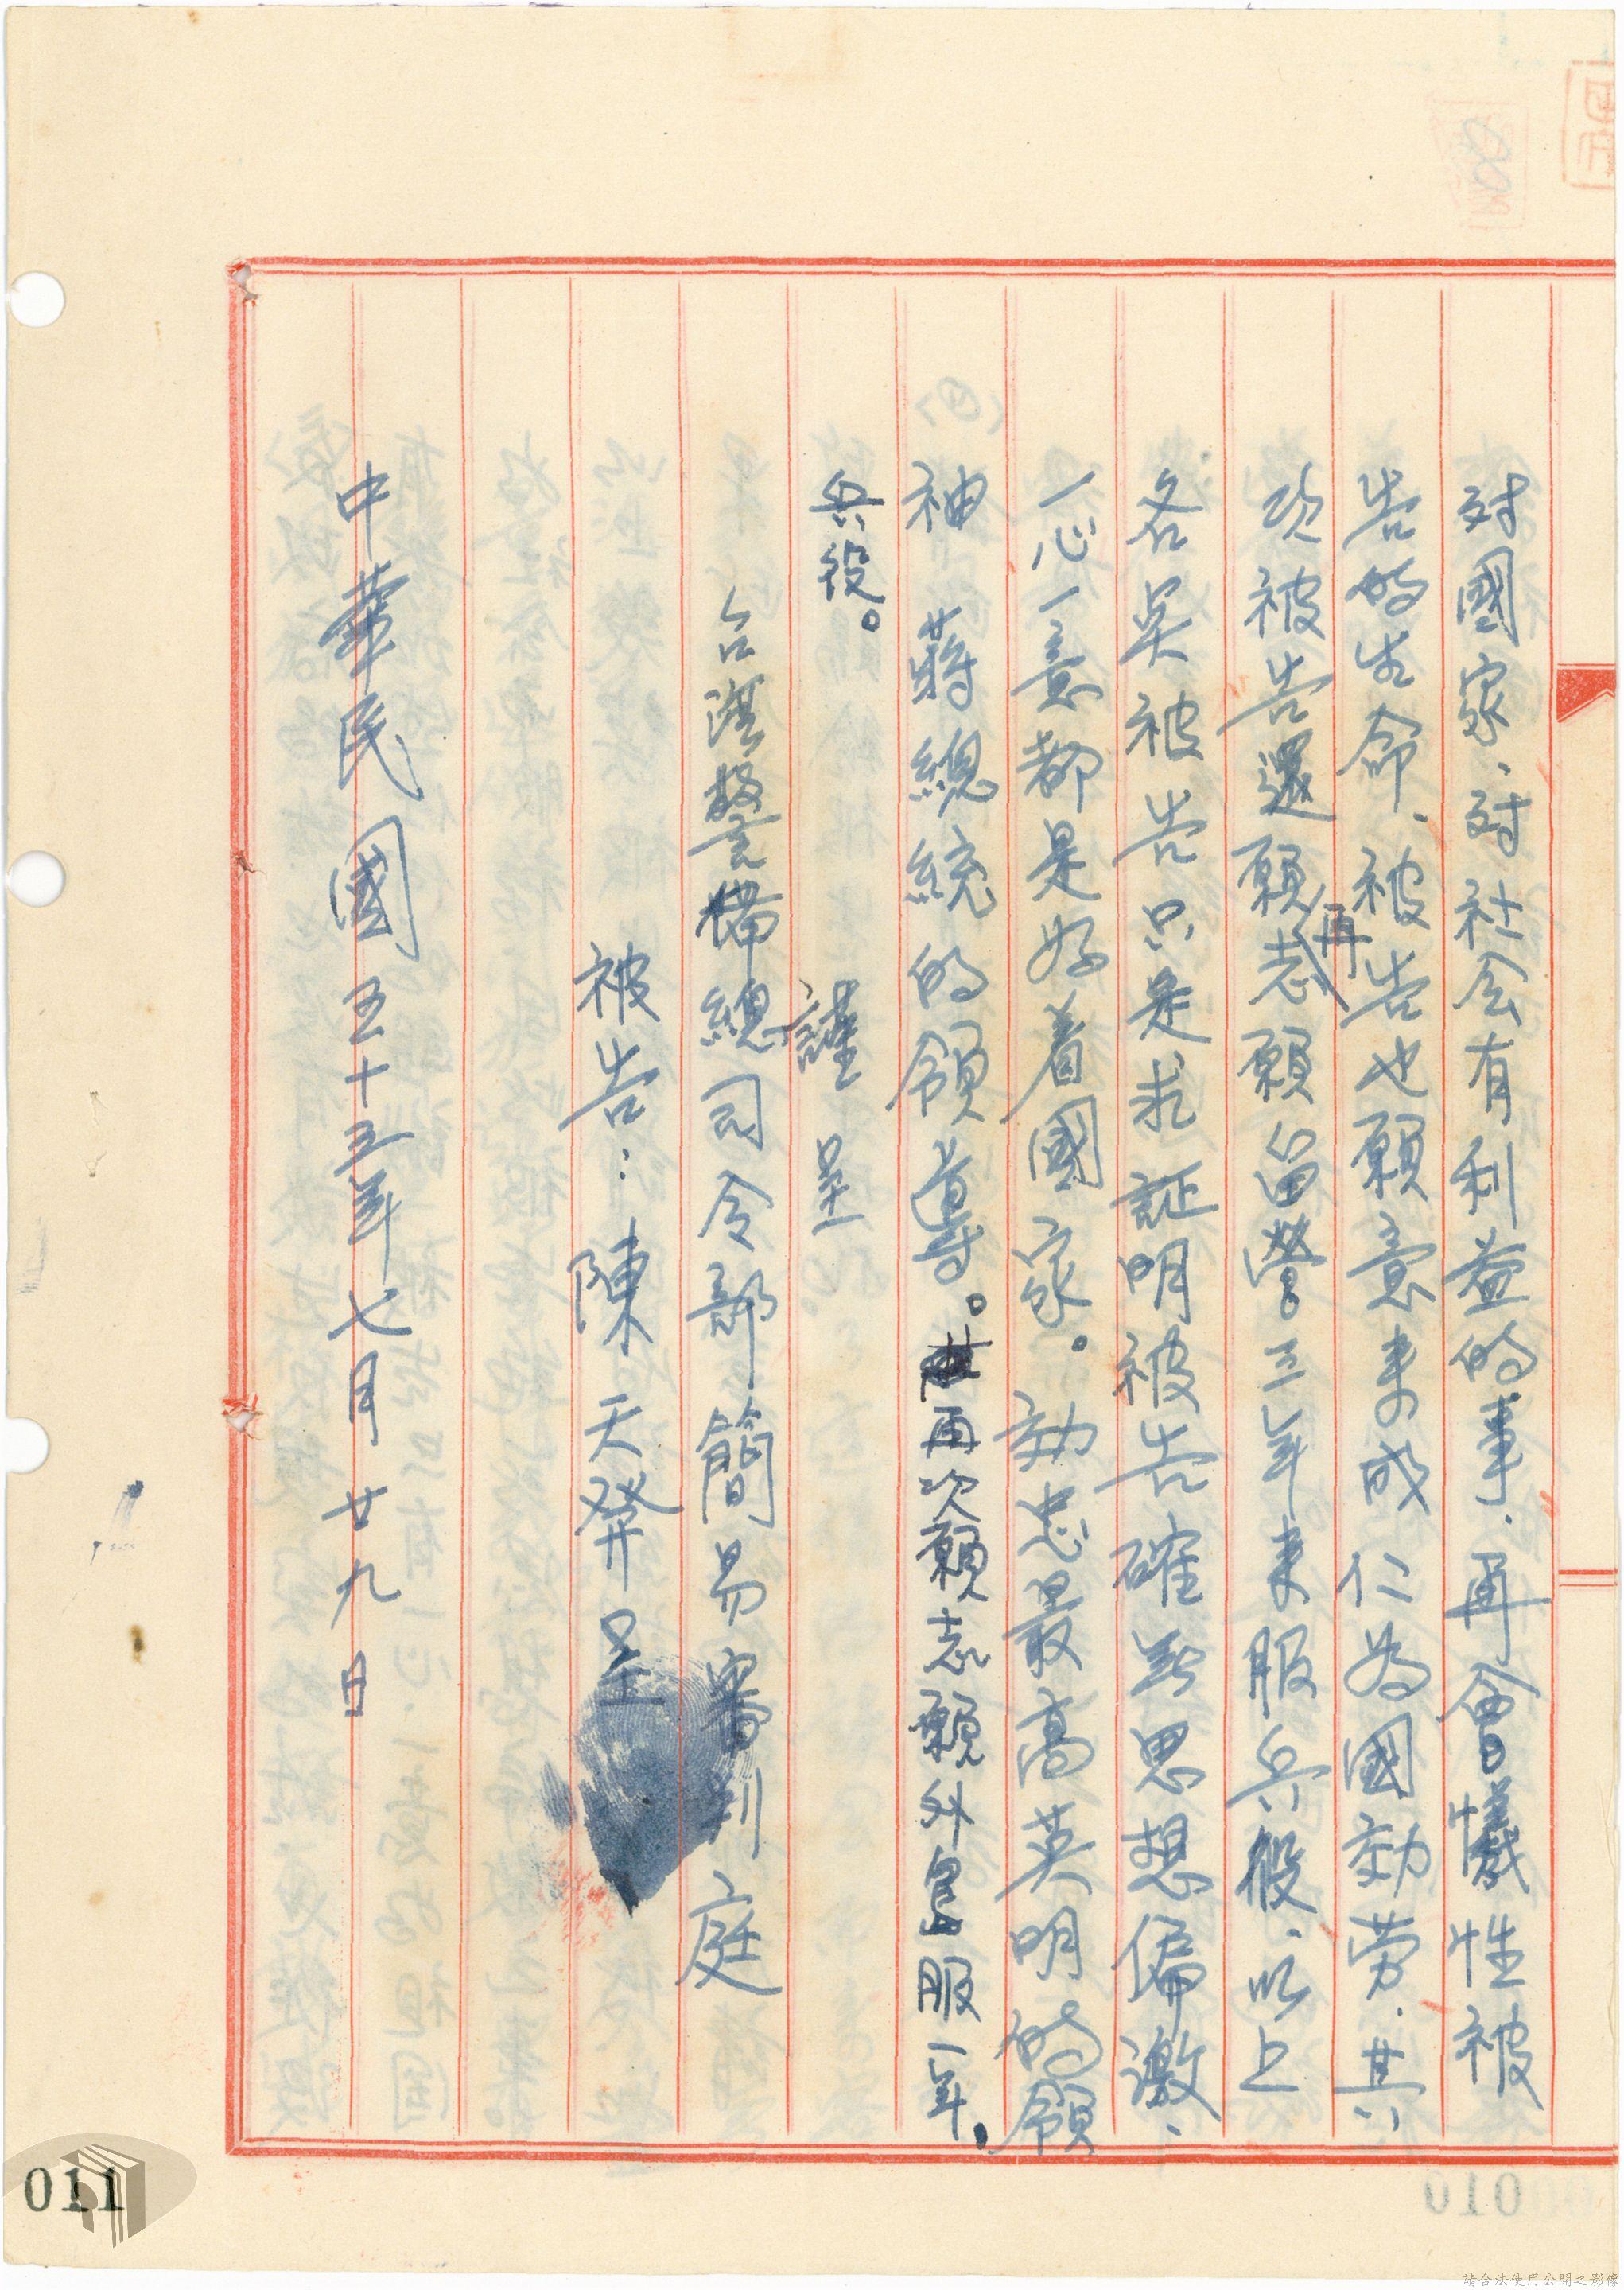 対國家、対社会有利益的事、再會犧牲被
告的生命、被告也願意来成仁為國効劳、其
次被告還願志願留營三年来服兵役、以上
再
各英被告只是求証明被告確無思想偏激、
一心一意都是好着國家。効忠最高英明的領
袖 蔣總統的領導。再次願志願外島服一年。
兵役。
謹呈
台湾警備總司令部簡易審判庭
被告：陳天發呈
中華民國五十三年七月廿九日
011
010
請合法使用公開之影像